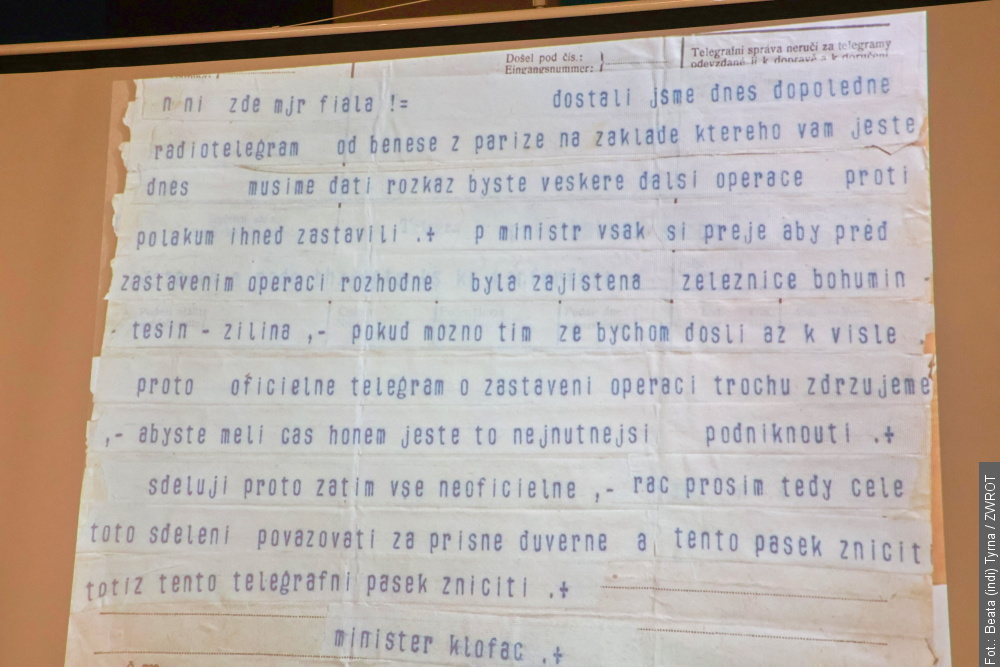 Došel pod čís.:
Eingangsnummer:
Telegrafní správa neručí za telegramy
odevzdané jí k dopravě a k doručení
n ni zde mjr fiala != dostali jsme dnes dopoledne
radiotelegram od benese z parize na zaklade ktereho vam jeste
dnes musime dati rozkaz byste veskere dalsi operace proti
polakum ihned zastavili .+ p ministr vsak si preje aby pred
zastavenim operaci rozhodne byla zajistena zeleznice bohumin -
- tesin - zilina ,- pokud mozno tim ze bychom dosli az k visle .
proto oficielne telegram o zastaveni operaci trochu zdrzujeme
,- abyste meli cas honem jeste to nejnutnejsi podniknouti .+
sdeluji proto zatim vse neoficielne ,- rac prosim tedy cele
toto sdeleni povazovati za prisne duverne a tento pasek znicit
totiz tento telegrafni pasek zniciti .+
minister klofac .+
Fot.: Beata (indi) Tyrna / ZWROT